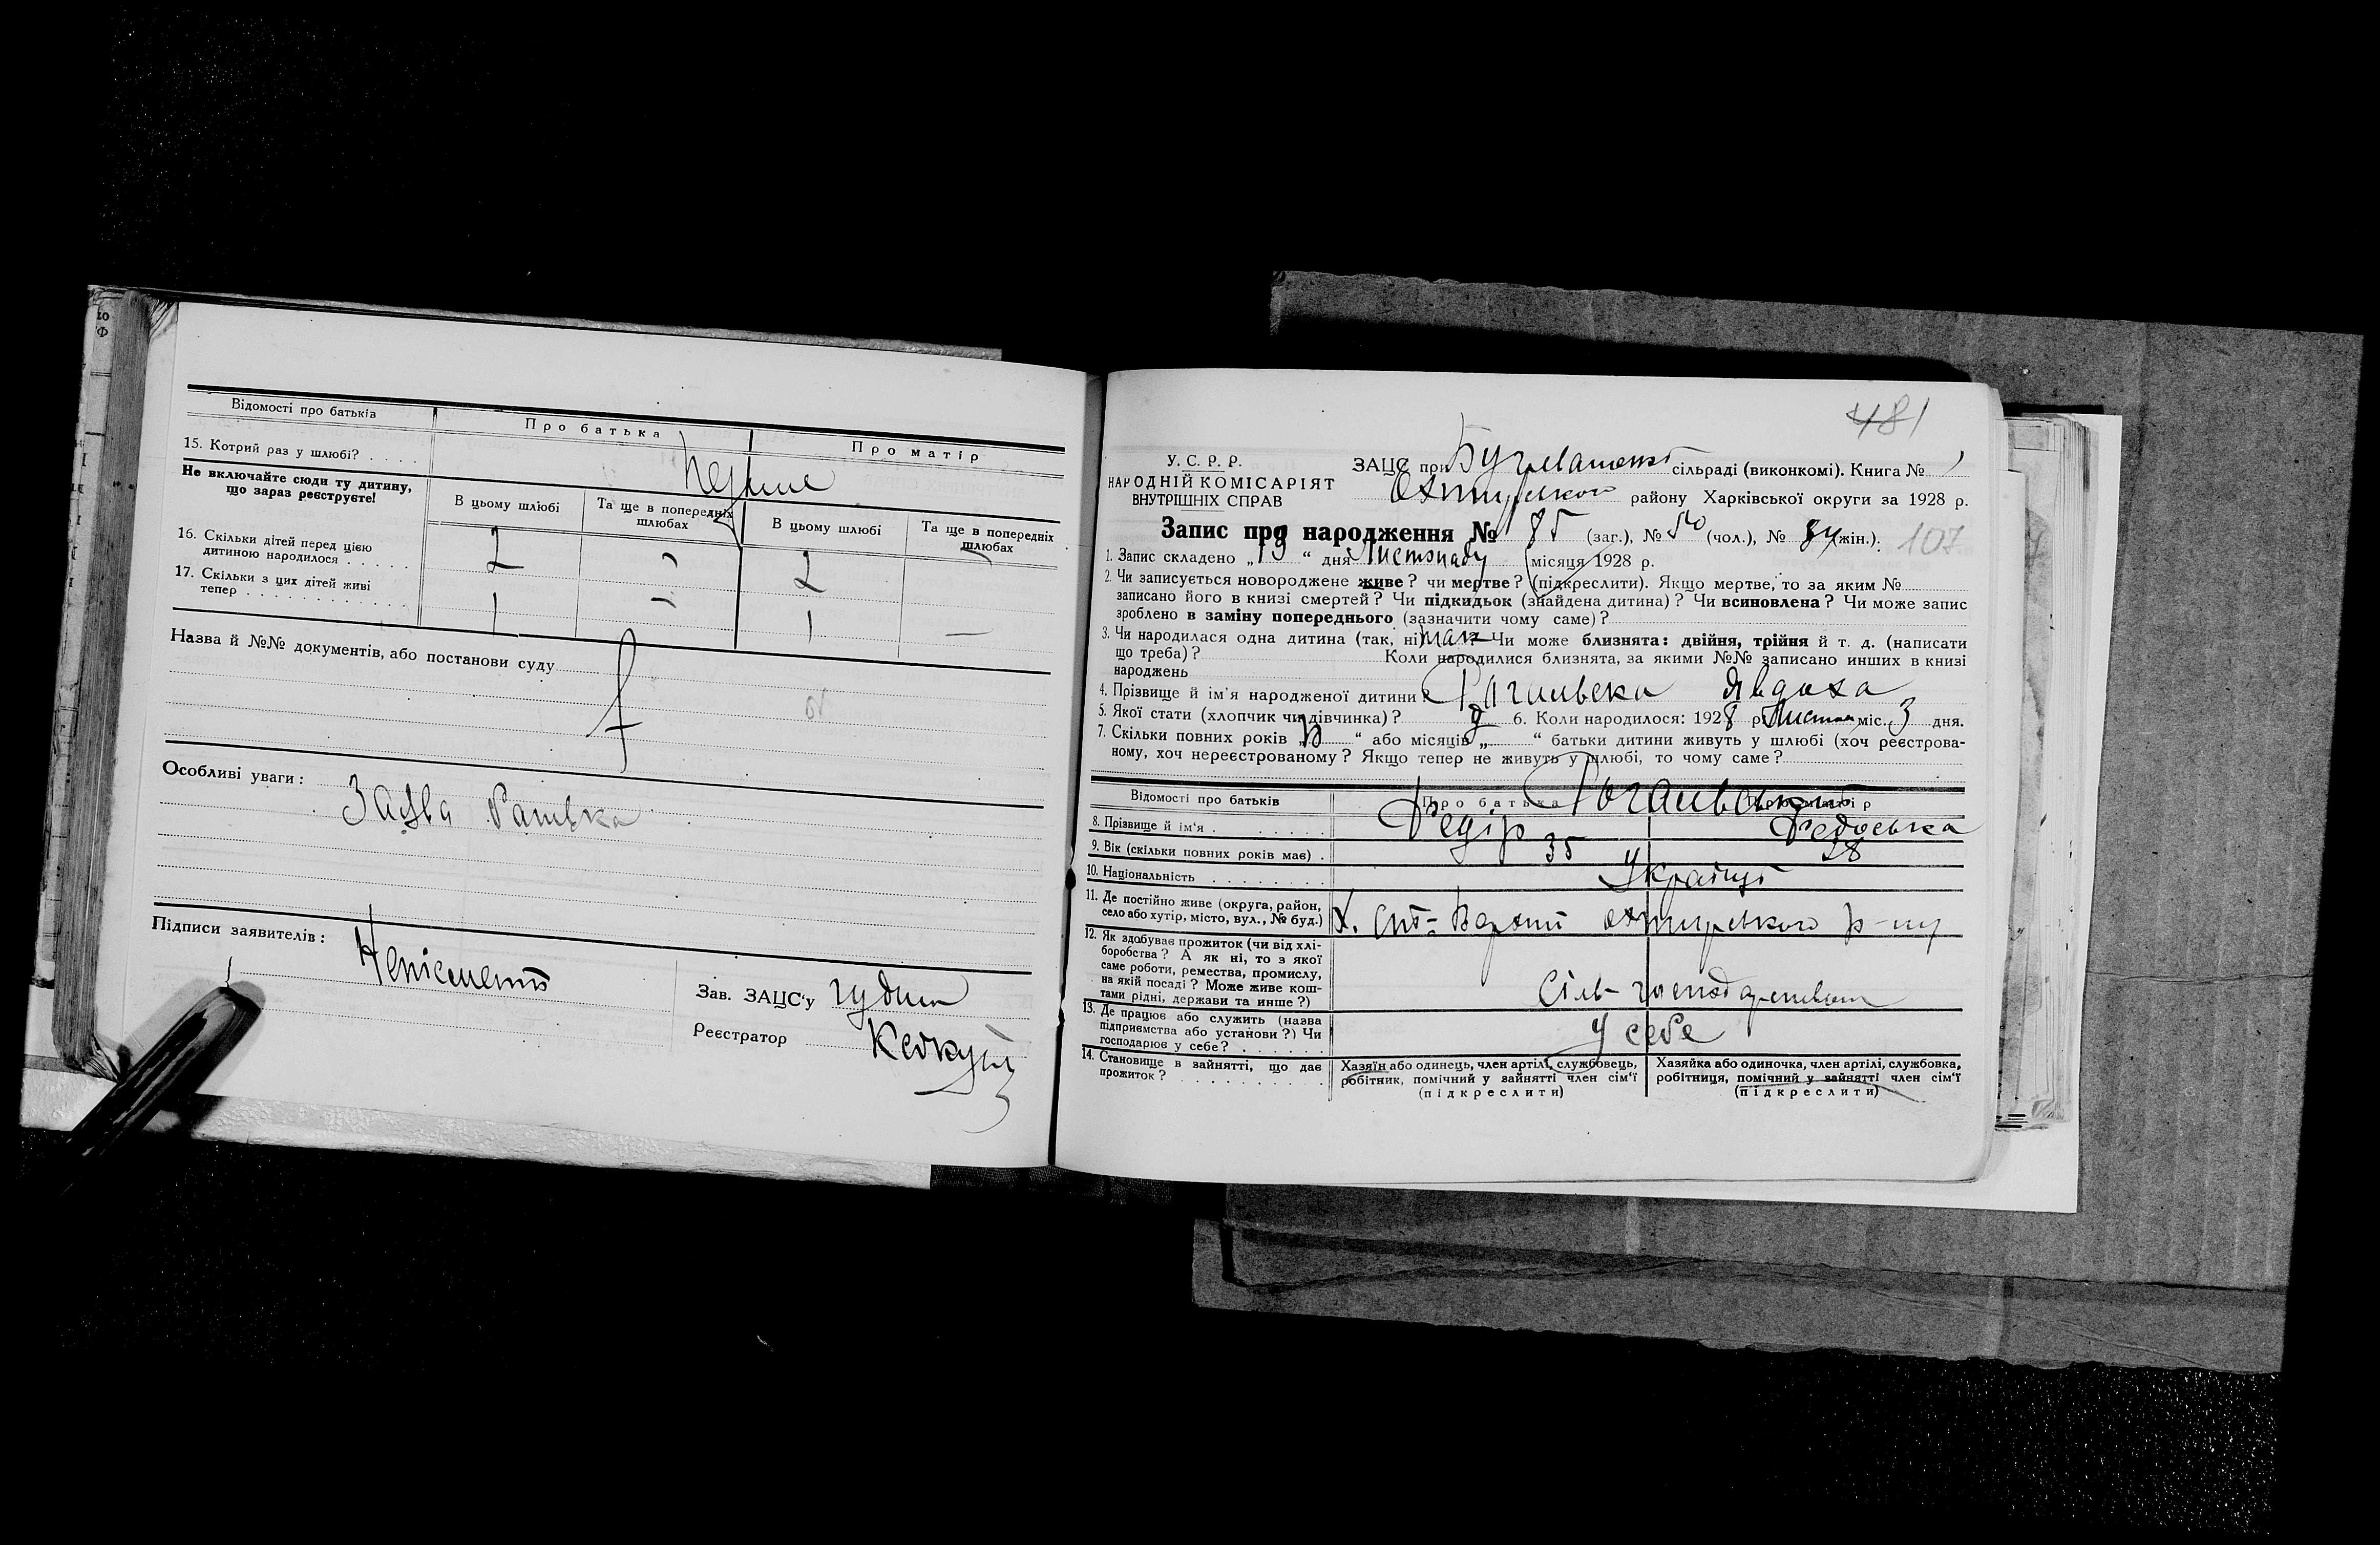 Відомості про батьків
Про батька
Про матір
15. Котрий раз у шлюбі? . . . .
Перше
Не включайте сюди ту дитину,
що зараз реєструєте!
В цьому шлюбі
Та ще в попередніх
шлюбах
В цьому шлюбі
Та ще в попередніх
шлюбах
16. Скільки дітей перед цією
дитиною народилося . . . . .
2 – 2
17. Скільки з цих дітей живі
тепер . . . . . . . . . . . .
1 – 1 –
Назва й №№ документів, або постанови суду
Особливі уваги:
Заява Батька
Підписи заявителів:
Неписьмений
Зав. ЗАЦС'у
Реєстратор
481
У. С. Р. Р.
НАРОДНІЙ КОМІСАРІЯТ
ВНУТРІШНІХ СПРАВ
ЗАЦС при сільраді (виконкомі). Книга №
Охтирського району Харківської округи за 1928 р.
Запис про народження № 85 (заг.), № (чол.), № (жін.).
107
1. Запис складено „19“ дня Листопаду місяця 1928 р.
2. Чи записується новороджене живе? чи мертве? (підкреслити). Якщо мертве, то за яким №
записано його в книзі смертей? Чи підкидьок (знайдена дитина)? Чи всиновлена? Чи може запис
зроблено в заміну попереднього (зазначити чому саме)?
3. Чи народилася одна дитина (так, ні) так Чи може близнята: двійня, трійня й т. д. (написати
що треба)? Коли народилися близнята, за якими №№ записано инших в книзі
народжень
4. Прізвище й ім'я народженої дитини: Явдоха
5. Якої стати (хлопчик чи дівчинка)? д 6. Коли народилося: 1928 р. Листоп міс. 3 дня.
7. Скільки повних років „ “ або місяців „ “ батьки дитини живуть у шлюбі (хоч реєстрова-
ному, хоч нереєстрованому? Якщо тепер не живуть у шлюбі, то чому саме?
Відомості про батьків
Про батька
Про матір
8. Прізвище й ім'я . . . . . . .
Федір
Федоська
9. Вік (скільки повних років має) .
35
28
10. Національність . . . . . . . .
Україці
11. Де постійно живе (округа, район,
село або хутір, місто, вул., № буд.)
Х. охтирського р-ну
12. Як здобуває прожиток (чи від хлі-
боробства? А як ні, то з якої
саме роботи, ремества, промислу,
на якій посаді? Може живе кош-
тами рідні, держави та инше?)
Сіль-господарством
13. Де працює або служить (назва
підприємства або установи?) Чи
господарює у себе? . . . . . .
У себе
14. Становище в зайнятті, що дає
прожиток? . . . . . . . . . . .
Хазяїн або одинець, член артілі, службовець,
робітник, помічний у зайнятті член сім'ї
(підкреслити)
Хазяйка або одиночка, член артілі, службовка,
робітниця, помічний у зайнятті член сім'ї
(підкреслити)